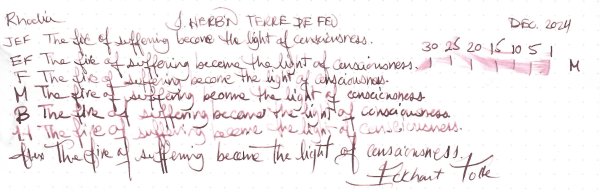 Rhodia J. HERBIN TERRE DE FEU DEC. 2024
JEF The fire of suffering become the light of consciousness.
30 25 20 15 10 5 1
EF The fire of suffering become the light of consciousness. M
F The fire of suffering become the light of consciousness.
M The fire of suffering become the light of consciousness
B The fire of suffering become the light of consciousness
The fire of suffering become the light of consciousness.
flex The fire of suffering become the light of consciousness.
Eckhart Tolle